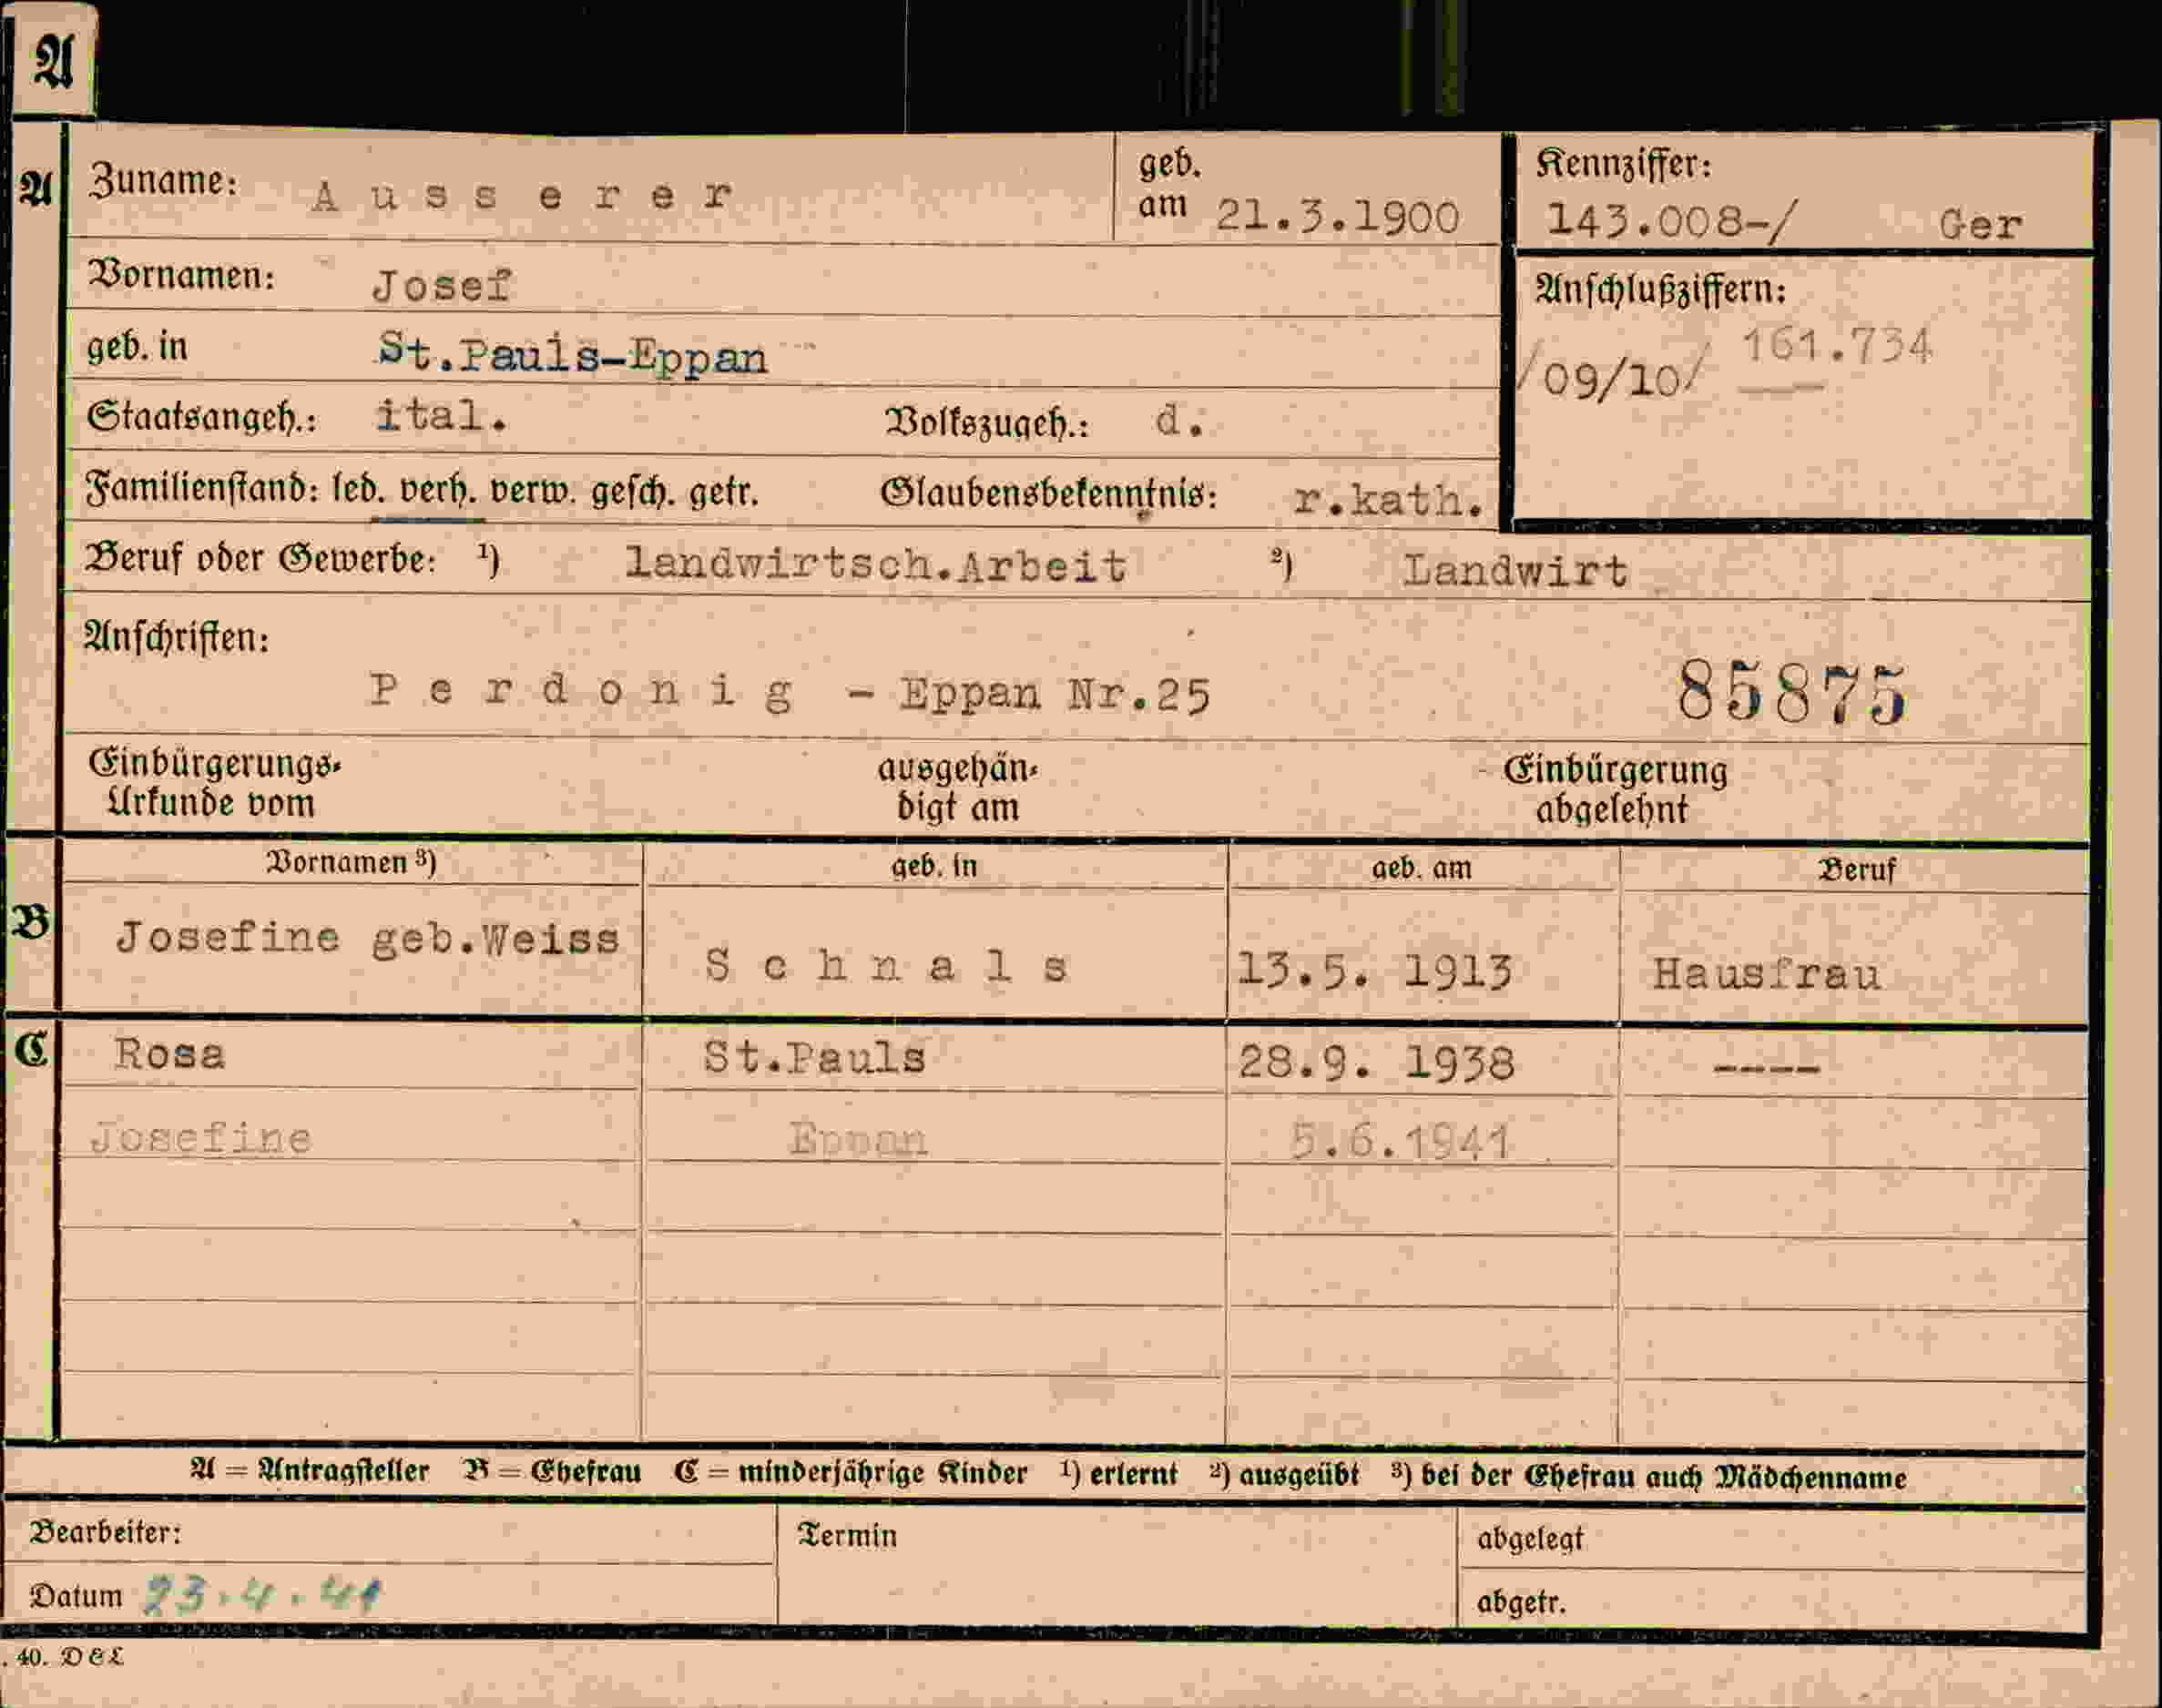 A
A Zuname: Ausserer geb. am 21.3.1900 Kennziffer: 143.008-/ Ger
Vornamen: Josef Anschlußziffern:
geb. in St.Pauls-Eppan /09/10/ 161.734
Staatsangeh.: ital. Volkszugeh.: d.
Familienstand: led. verh. verw. gesch. getr. Glaubensbekenntnis: r.kath.
Beruf oder Gewerbe: ¹) landwirtsch.Arbeit ²) Landwirt
Anschriften:
Perdonig - Eppan Nr.25 85875
Einbürgerungs- ausgehän- Einbürgerung
Urkunde vom digt am abgelehnt
Vornamen ³) geb. in geb. am Beruf
B Josefine geb.Weiss Schnals 13.5. 1913 Hausfrau
C Rosa St.Pauls 28.9. 1938 ----
Josefine Eppan 5.6.1941
A = Antragsteller B = Ehefrau C = minderjährige Kinder ¹) erlernt ²) ausgeübt ³) bei der Ehefrau auch Mädchenname
Bearbeiter: Termin abgelegt
Datum 23.4.41 abgetr.
. 40. D & L